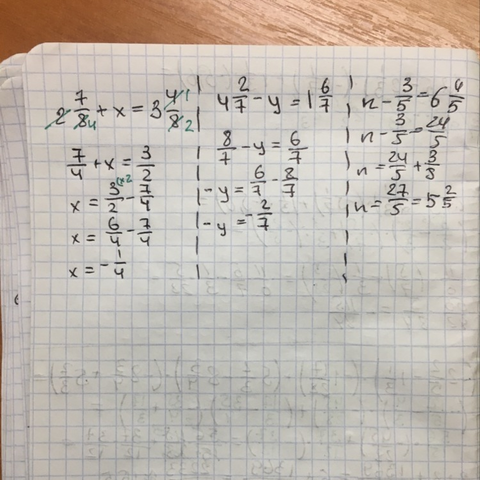 2 7/8 4 + x = 3 4/8 1 2
7/4 + x = 3/2
x = 3/2 (x2 - 7/4
x = 6/4 - 7/4
x = - 1/4
4 2/7 - y = 1 6/7
8/7 - y = 6/7
- y = 6/7 - 8/7
- y = - 2/7
n - 3/5 = 6 4/5
n - 3/5 = 24/5
n = 24/5 + 3/5
n = 27/5 = 5 2/5